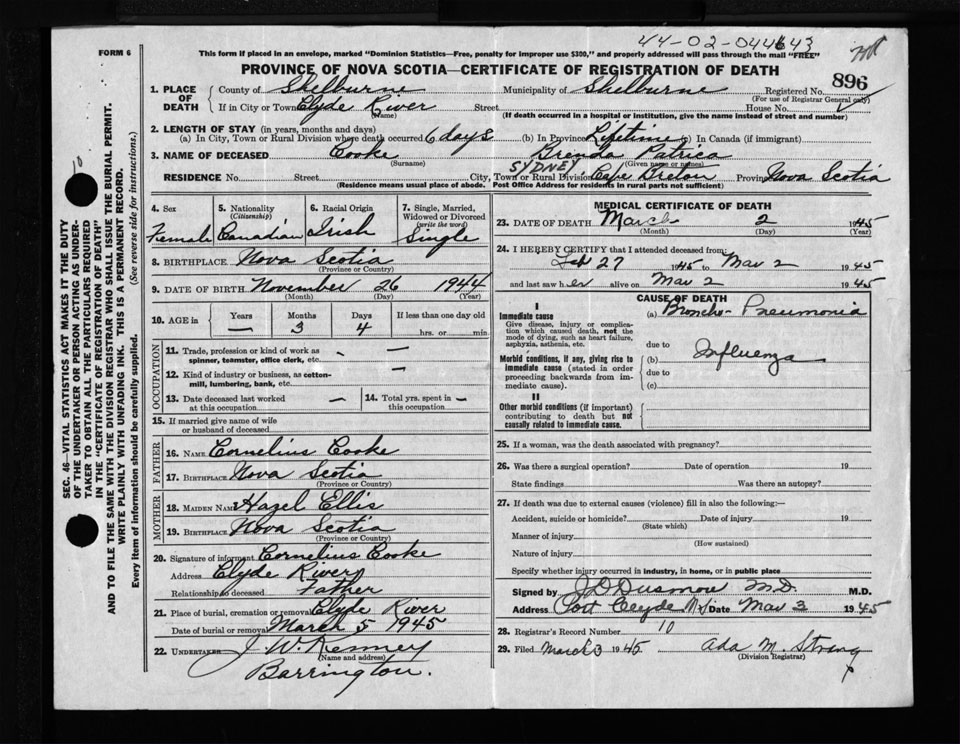 44-02-044643
FORM 6
This form if placed in an envelope, marked "Dominion Statistics—Free, penalty for improper use $300," and properly addressed will pass through the mail "FREE"
PROVINCE OF NOVA SCOTIA—CERTIFICATE OF REGISTRATION OF DEATH
896
1. PLACE OF DEATH County of Shelburne Municipality of Shelburne Registered No.
(For use of Registrar General only)
If in City or Town Clyde River Street House No.
(Name) (If death occurred in a hospital or institution, give the name instead of street and number)
2. LENGTH OF STAY (in years, months and days)
(a) In City, Town or Rural Division where death occurred 6 days (b) In Province Lifetime (c) In Canada (if immigrant)
3. NAME OF DECEASED Cooke Brenda Patrica
(Surname) (Given name or names)
SYDNEY
RESIDENCE No. Street City, Town or Rural Division Cape Breton Province Nova Scotia
(Residence means usual place of abode. Post Office Address for residents in rural parts not sufficient)
SEC. 46—VITAL STATISTICS ACT MAKES IT THE DUTY
OF THE UNDERTAKER OR PERSON ACTING AS UNDER-
TAKER TO OBTAIN ALL THE PARTICULARS REQUIRED
IN THE "CERTIFICATE OF REGISTRATION OF DEATH"
AND TO FILE THE SAME WITH THE DIVISION REGISTRAR WHO SHALL ISSUE THE BURIAL PERMIT.
WRITE PLAINLY WITH UNFADING INK. THIS IS A PERMANENT RECORD.
Every item of information should be carefully supplied. (See reverse side for instructions.)
10
4. Sex 5. Nationality (Citizenship) 6. Racial Origin 7. Single, Married, Widowed or Divorced (write the word)
Female Canadian Irish Single
8. BIRTHPLACE Nova Scotia
(Province or Country)
9. DATE OF BIRTH November 26 1944
(Month) (Day) (Year)
10. AGE in Years Months Days If less than one day old
— 3 4 hrs. or min.
OCCUPATION
11. Trade, profession or kind of work as spinner, teamster, office clerk, etc. — —
12. Kind of industry or business, as cotton-mill, lumbering, bank, etc. —
13. Date deceased last worked at this occupation — 14. Total yrs. spent in this occupation —
15. If married give name of wife or husband of deceased
FATHER
16. NAME Cornelius Cooke
17. BIRTHPLACE Nova Scotia
(Province or Country)
MOTHER
18. MAIDEN NAME Hazel Ellis
19. BIRTHPLACE Nova Scotia
(Province or Country)
20. Signature of informant Cornelius Cooke
Address Clyde River
Relationship to deceased Father
21. Place of burial, cremation or removal Clyde River
Date of burial or removal March 5 1945
22. UNDERTAKER J. W. Kenney
(Name and address)
Barrington.
MEDICAL CERTIFICATE OF DEATH
23. DATE OF DEATH March 2 1945
(Month) (Day) (Year)
24. I HEREBY CERTIFY that I attended deceased from:
Feb 27 1945 to Mar 2 1945
and last saw her alive on Mar 2 1945
CAUSE OF DEATH
I
Immediate cause
Give disease, injury or complication which caused death, not the mode of dying, such as heart failure, asphyxia, asthenia, etc.
(a) Broncho-Pneumonia
due to
Morbid conditions, if any, giving rise to immediate cause (stated in order proceeding backwards from immediate cause).
(b) Influenza
due to
(c)
II
Other morbid conditions (if important) contributing to death but not causally related to immediate cause.
25. If a woman, was the death associated with pregnancy?
26. Was there a surgical operation? Date of operation 19
State findings Was there an autopsy?
27. If death was due to external causes (violence) fill in also the following:—
Accident, suicide or homicide? Date of injury 19
(State which)
Manner of injury
(How sustained)
Nature of injury
Specify whether injury occurred in industry, in home, or in public place
Signed by M.D. M.D.
Address Port Clyde N.S Date Mar 3 1945
28. Registrar's Record Number 10
29. Filed March 3 1945 Ada M. Strang
(Division Registrar)